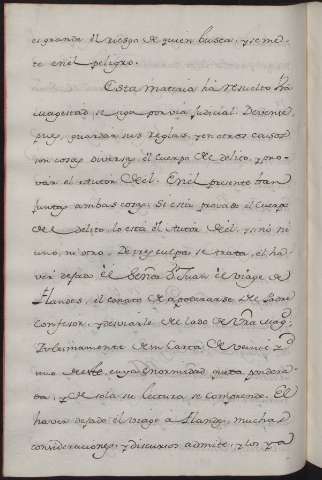 es grande el riesgo de quien busca, y se me-
te en el peligro.
Esta materia há resuelto Vra
Magestad, se siga por via Judicial. Deven se,
pues, guardar sus reglas, y en otros casos
son cosas diversas el Cuerpo del delito, y pro-
var el Autor del. En el presente han
juntas ambas cosas. Si está provado el Cuerpo
del delito, lo está el Autor del, y sino ni
uno, ni otro. De tres culpas se trata, el ha-
ver dejado el Señor Dn Juan el viage de
Flandes, el conato de apoderarse del Padre
Confesor, y desviarlo del lado de Vra Magd
Ultimamente de una Carta de veinte y
uno deste, cuya enormidad quita pondera-
, y de sola su lectura se comprende. El
haver dejado el viage á Flandes, muchas
consideraciones, y discursos admite, y los ya